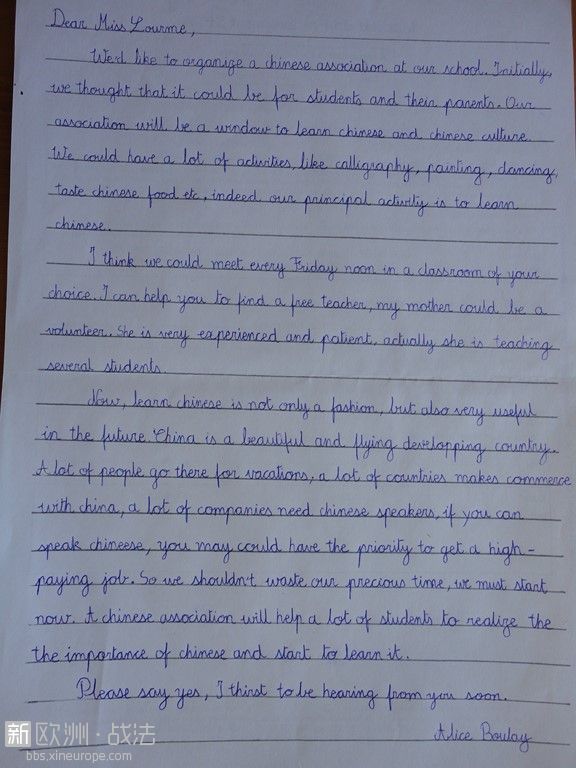 Dear Miss Lourme,
We'd like to organize a chinese association at our school. Initially,
we thought that it could be for students and their parents. Our
association will be a window to learn chinese and chinese culture.
We could have a lot of activities, like calligraphy, painting, dancing,
taste chinese food etc, indeed our principal activity is to learn
chinese.
I think we could meet every Friday noon in a classroom of your
choice. I can help you to find a free teacher, my mother could be a
volunteer. She is very experienced and patient, actually she is teaching
several students.
Now, learn chinese is not only a fashion, but also very useful
in the future. China is a beautiful and flying developping country.
A lot of people go there for vacations, a lot of countries makes commerce
with china, a lot of companies need chinese speakers, if you can
speak chineese, you may could have the priority to get a high-
paying job. So we shouldn't waste our precious time, we must start
now. A chinese association will help a lot of students to realize the
the importance of chinese and start to learn it.
Please say yes, I thirst to be hearing from you soon.
Alice Boulay
新欧洲·战法
bbs.xineurope.com